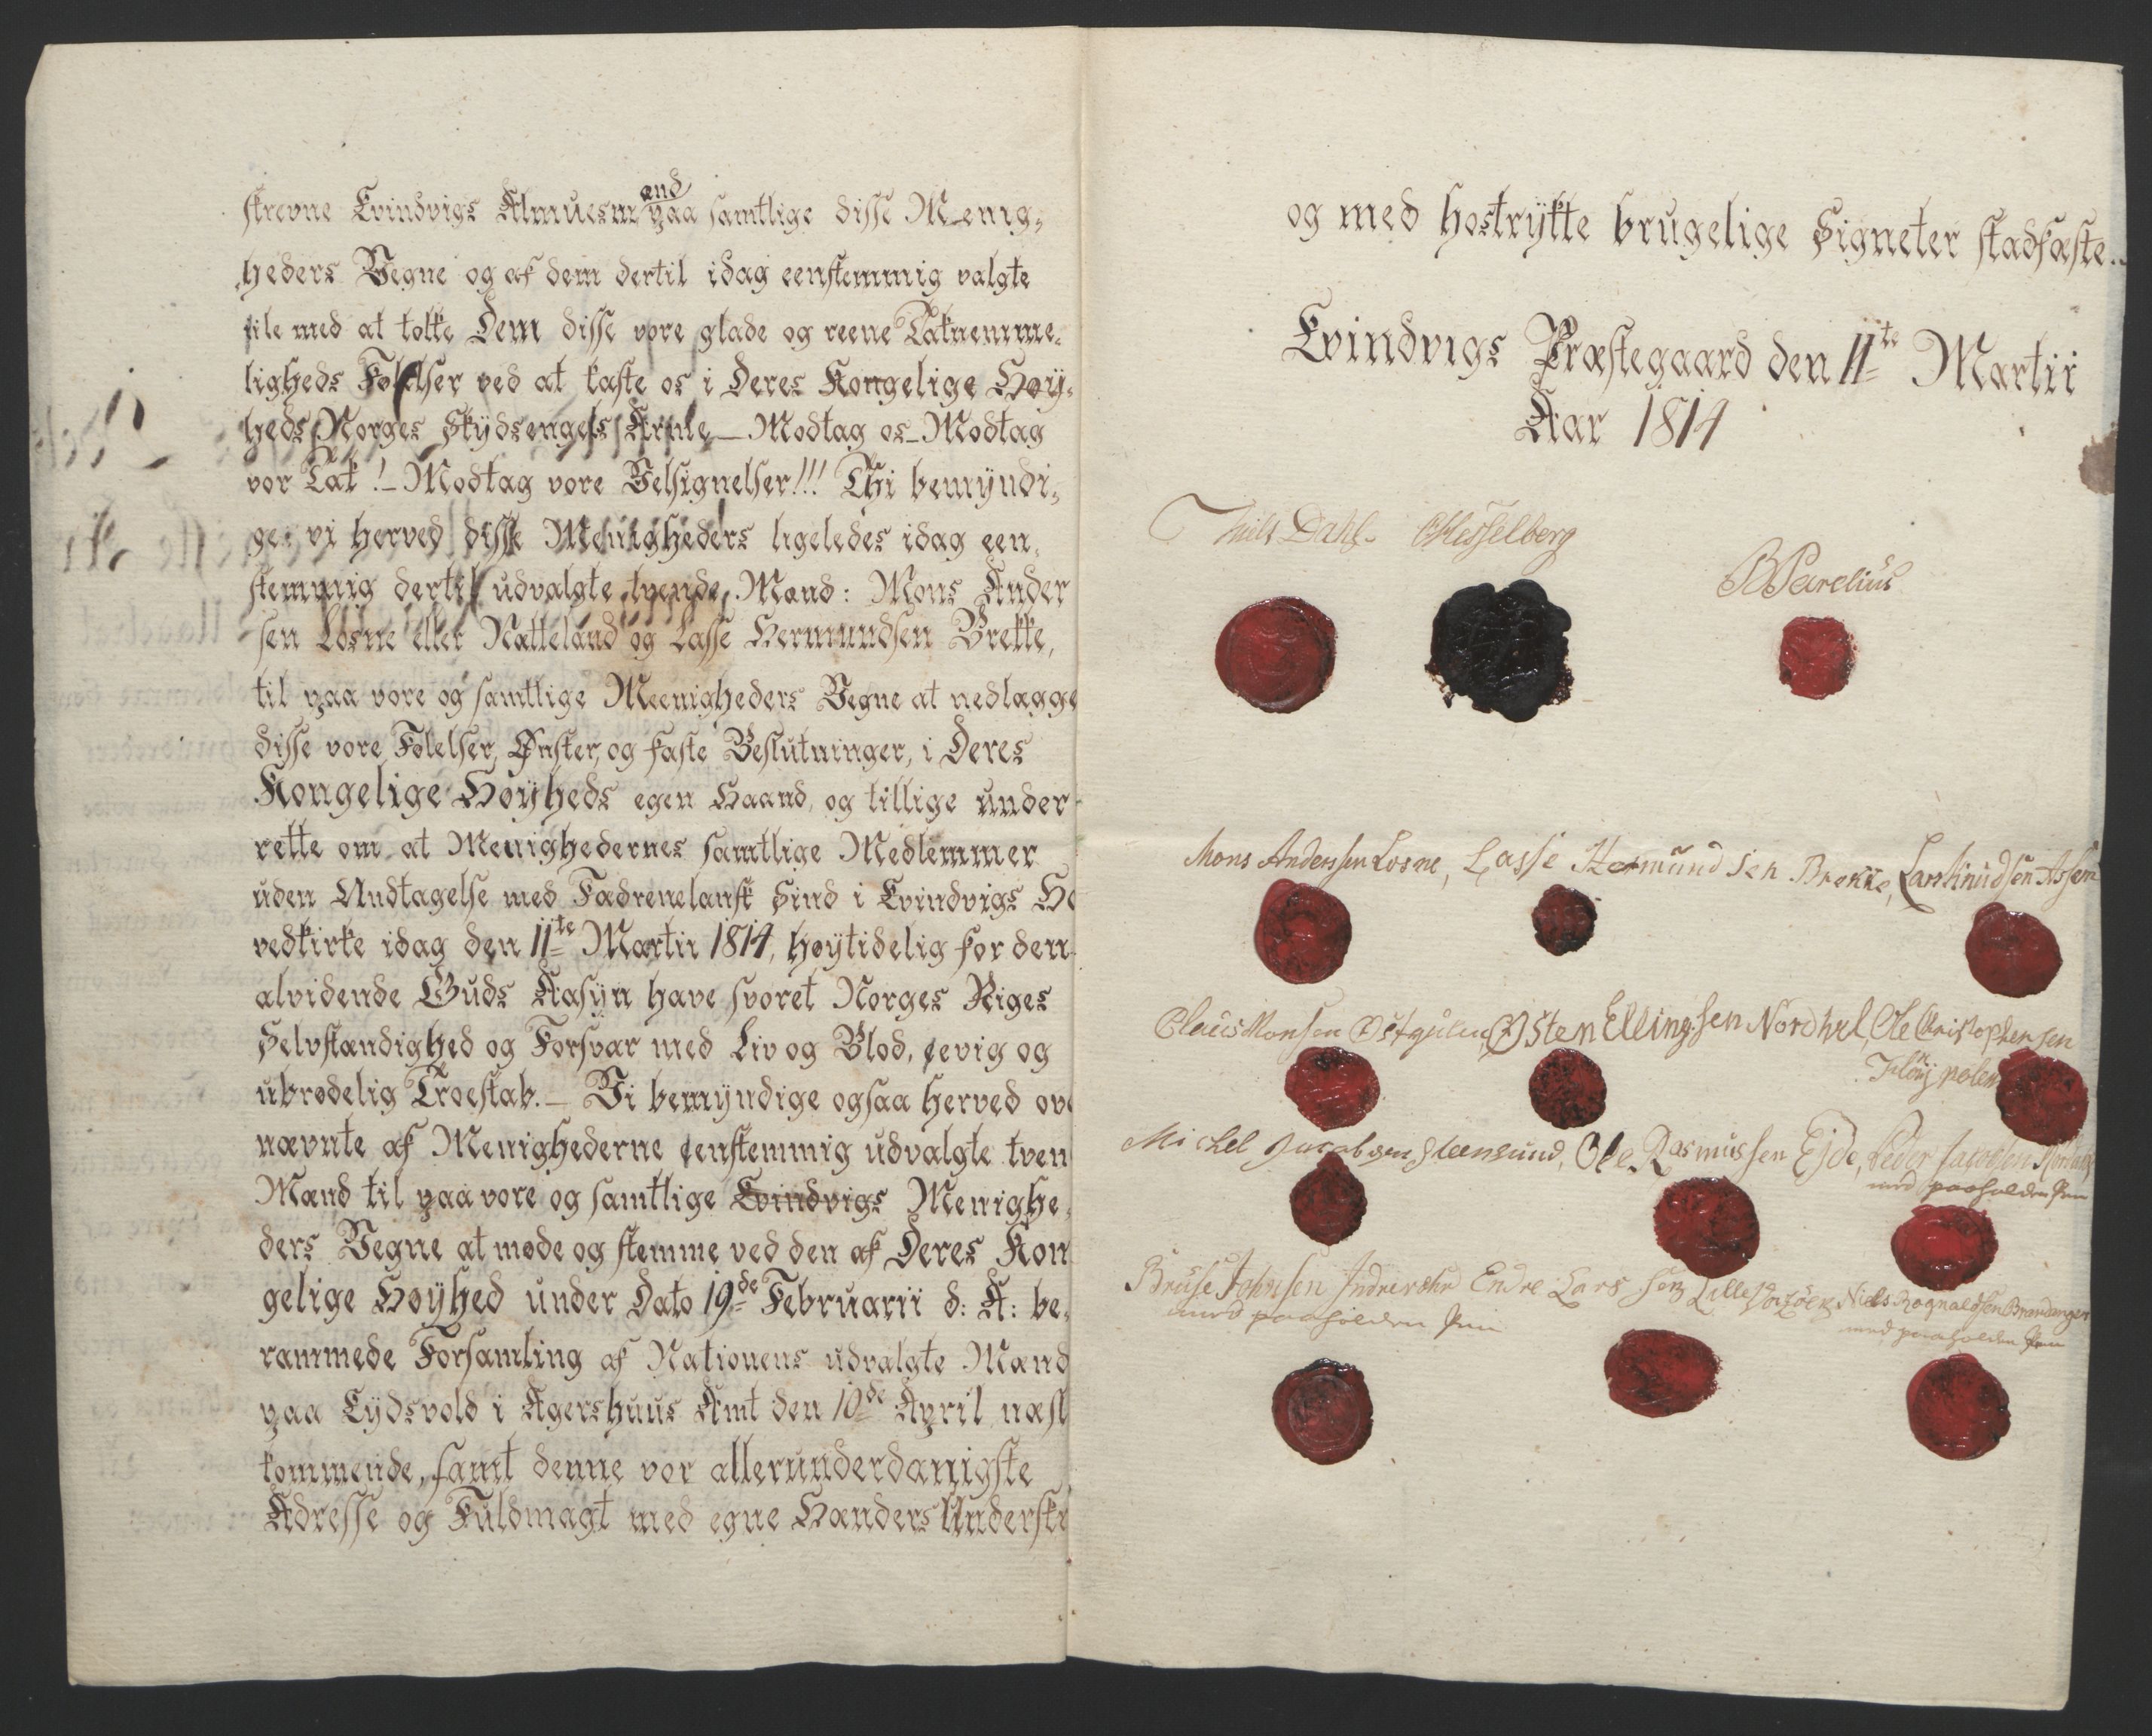 skrevne Evindvigs Almuesmænd paa samtlige disse Menig,
heders Vegne og af dem dertil idag eenstemmig valgte
iile med at tolke Dem disse vore glade og reene Taknemme,
ligheds Følelser ved at kaste os i Deres Kongelige Høy,
heds Norges Skydsengels Arme – Modtag os – Modtag
vor Tak! – Modtag vore Velsignelser!!! Thi bemyndi,
ge vi herved disse Menigheders ligeledes idag een,
stemmig dertil udvalgte tvende Mænd: Mons Ander
sen Losne eller Nætteland og Lasse Hermundsen Brekke,
til paa vore og samtlige Meenigheders Vegne at nedlægge
disse vore Følelser, Ønsker, og faste Beslutninger, i Deres
Kongelige Høyheds egen Haand, og tillige under
rette om at Menighedernes samtlige Medlemmer
uden Undtagelse med Fædrenelansk Sind i Evindvigs Ho
vedkirke idag den 11te Martii 1814, høytidelig for den
alvidende Guds Aasyn have svoret Norges Riges
Selvstændighed og Forsvar med Liv og Blod, evig og
ubrødelig Troeskab. – Vi bemyndige ogsaa herved ove
nævnte af Menighederne eenstemmig udvalgte tven
Mænd til paa vore og samtlige Evindvigs Menighe,
ders Vegne at møde og stemme ved den af Deres Kon
gelige Høyhed under Dato 19de Februarii d: A: be,
rammede Forsamling af Nationens udvalgte Mænd
paa Eydsvold i Agershuus Amt den 10de April næst
kommende, samt denne vor allerunderdanigste
Adresse og Fuldmagt med egne Hænders Underskr
og med hostrykte brugelige Signeter stadfæste..
Evindvigs Præstegaard den 11te Martii
Aar 1814
Niels Dahl. Hesselberg
B Parelius
Mons Anderssen Losne, Lasse Hermundsen Brekke, Lars Knudsen
Claus Monsen Østgulen, Østen Ellingsen Nordhvel, Ole Christophersen
Michel Jacobsen Steensund, Ole Rasmussen Ejde, Peder Jacobsen
med paaholden Pen
Bruse Johnsen Endre Larssen Niels Rognaldsen Brandanger
med paaholden Pen med paaholden Pen